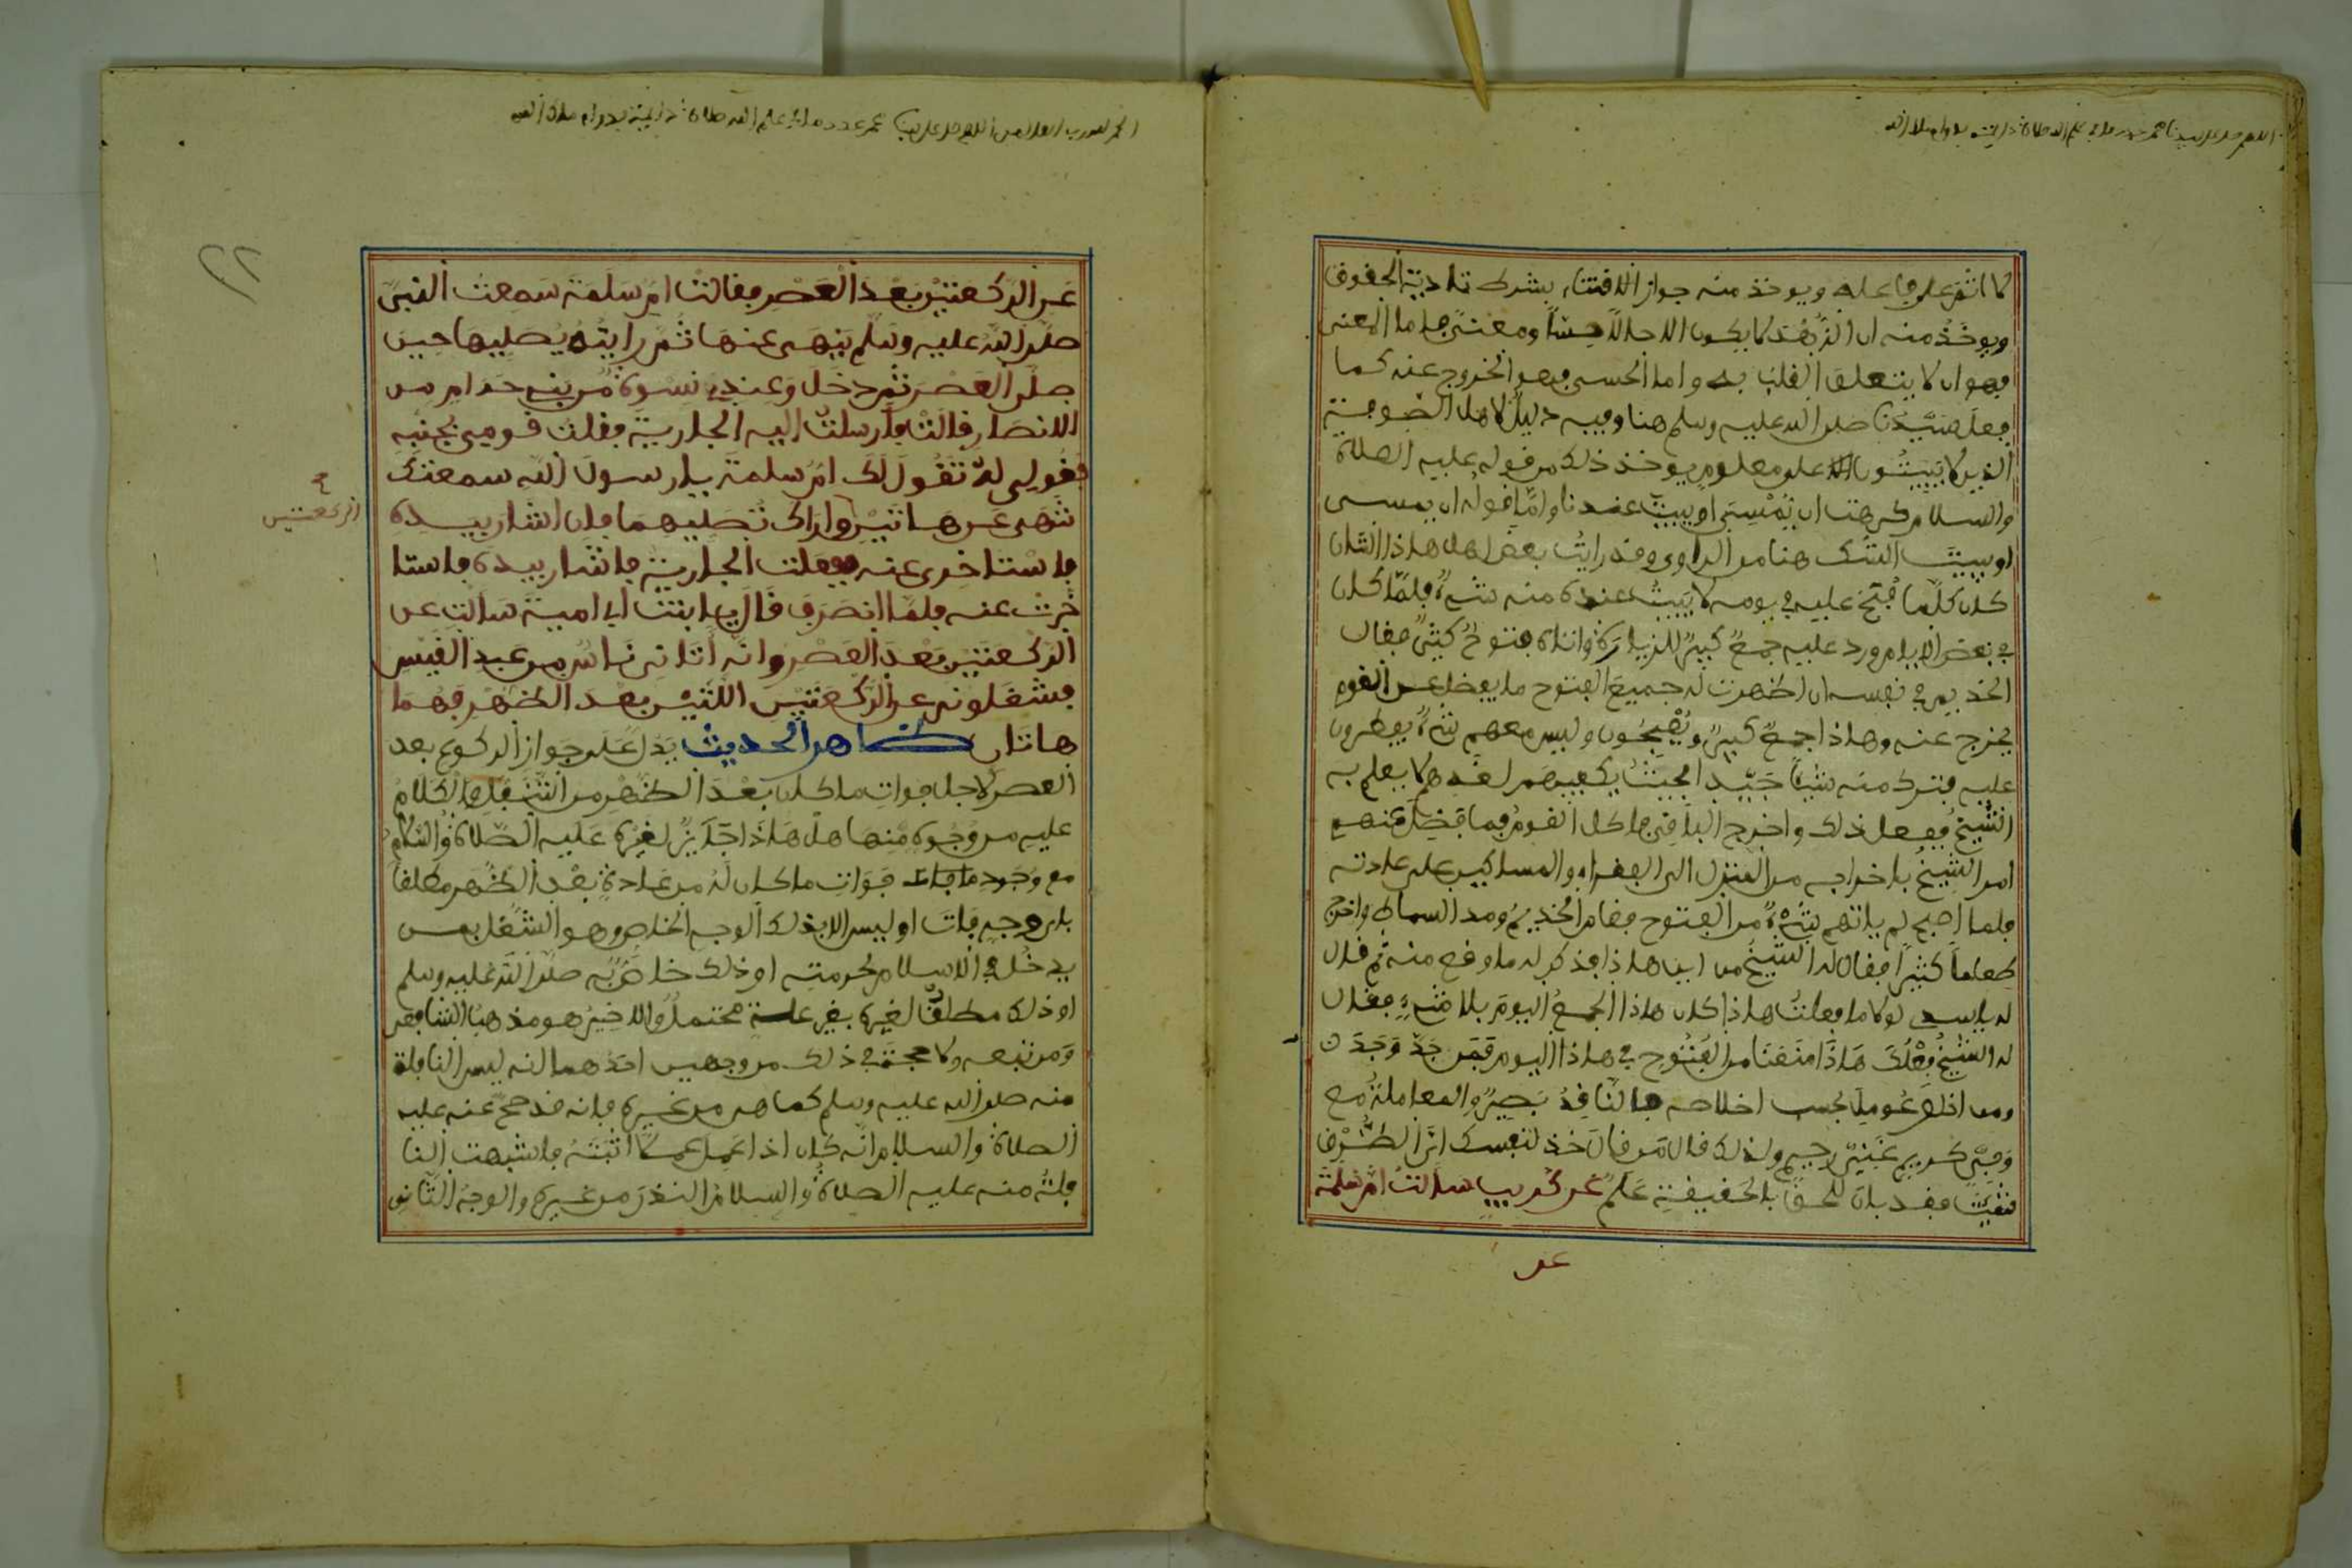 اللهم صل على سيدنا محمد عدد ما في علم الله صلاة دائمة بدوام ملك الله
لا اثم على فاعله ويوخذ منه جواز الاقتناء بشرط تادية الحقوق
ويوخذ منه ان الزهد لا يكون الا حالا حسا ومعنى فاما المعنى
فهو ان لا يتعلق القلب به واما الحسي فهو الخروج عنه كما
فعل سيدنا صلى الله عليه وسلم هنا وفيه دليل لاهل الصوفية
الذين لا يبيتون على معلوم يوخذ ذلك من قوله عليه الصلاة
والسلام كرهت ان يمسي او يبيت عندنا واما قوله ان يمسي
او يبيت الشك هنا من الراوي وقد رايت بعض اهل هاذا الشان
كان كلما فتح عليه في يومه لا يبيت عنده منه شيء فلما كان
في بعض الايام ورد عليه جمع كبير للزيارة واتاه فتوح كثير فقال
الخديم في نفسه ان اظهرت له جميع الفتوح ما يفضل عن القوم
يخرج عنه وهاذا جمع كبير ويصبحون وليس معهم شيء يفطرون
عليه فترك منه شيا جيدا بحيث يكفيهم لغدهم لا يعلم به
الشيخ ففعل ذلك واخرج الباقي فاكل القوم فما فضل عنهم
امر الشيخ باخراجه من المنزل الى الفقراء والمساكين على عادته
فلما اصبح لم ياتهم شيء من الفتوح فقام الخديم ومد السماط واخرج
طعاما كثيرا فقال له الشيخ من اين هاذا فذكر له ما وقع منه ثم قال
له يا سيدي لولا ما فعلت هاذا كان هاذا الجمع اليوم بلا شيء فقال
له الشيخ فعلك هاذا منعنا من الفتوح في هاذا اليوم فمن جد وجد
ومن اخلص عومل بحسب اخلاصه فالناقد بصير والمعاملة مع
وفي كريم غني رحيم ولذلك قال من قال خذ لنفسك اي الطرق
شيت فقد بان للحق بالحقيقة علم عن كريب سالت ام سلمة
عن
الحمد لله رب العالمين اللهم صل على سيدنا محمد عدد ما في علم الله صلاة دائمة بدوام ملك الله
٢٢
عن الركعتين بعد العصر فقالت ام سلمة سمعت النبي
صلى الله عليه وسلم ينهى عنها ثم رايته يصليها حين
صلى العصر ثم دخل وعندي نسوة من بني حرام من
الانصار فالت فارسلت اليه الجارية فقلت قومي بجنبه
فقولي له تقول لك ام سلمة يا رسول الله سمعتك
تنهى عن هاتين واراك تصليهما فان اشار بيده
الركعتين
فاستاخري عنه ففعلت الجارية فاشار بيده فاستا
خرت عنه فلما انصرف قال يا ابنت ابي امية سالت عن
الركعتين بعد العصر وانه اتاني ناس من عبد القيس
فشغلوني عن الركعتين اللتين بعد الظهر فهما
هاتان ظاهر الحديث يدل على جواز الركوع بعد
العصر لاجل فوات ما كان بعد الظهر من التنفل والكلام
عليه من وجوه منها هل هاذا جايز لغيره عليه الصلاة والسلام
مع وجود ما فات فوات ما كان له من عادة بعد الظهر مطلقا
باي وجه فات او ليس الا بذلك الوجه الخاص وهو الشغل بمن
يدخل في الاسلام لحرمته او ذلك خاص به صلى الله عليه وسلم
او ذلك مطلقا لغيره بغير علة محتمل والاخير هو مذهب الشافعي
ومن تبعه ولا حجة في ذلك من وجهين احدهما انه ليس النافلة
منه صلى الله عليه وسلم كما هي من غيره فانه قد صح عنه عليه
الصلاة والسلام انه كان اذا عمل عملا اثبته فاشبهت النا
فلة منه عليه الصلاة والسلام النذر من غيره والوجه الثاني